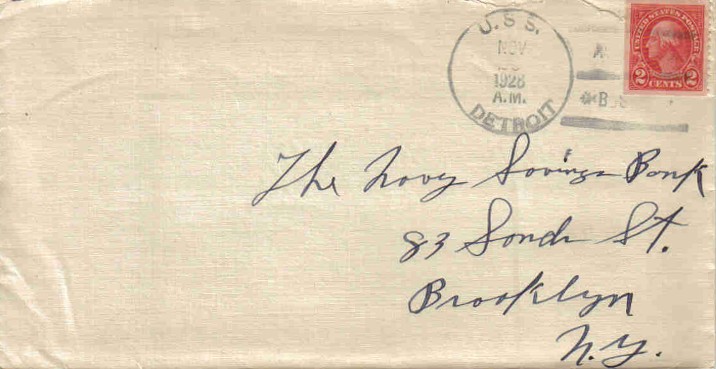 U.S.S.
NOV
1928
A.M.
DETROIT
UNITED STATES POSTAGE
2 CENTS 2
The Navy Savings Bank
83 Sands St.
Brooklyn
N.Y.